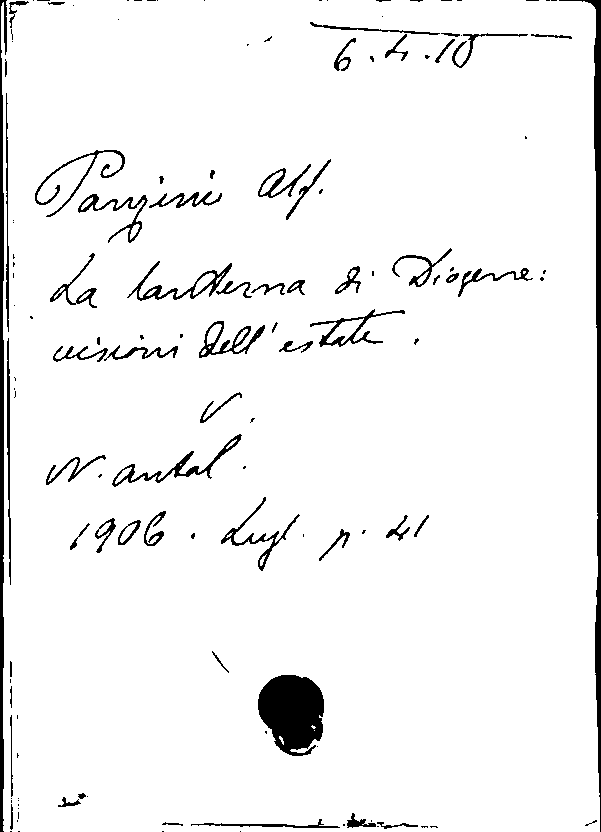 6.4.10
Panzini Alf.
La lanterna di Diogene:
visioni dell'estate.
V.
N. antol.
1906. Lugl. p. 41